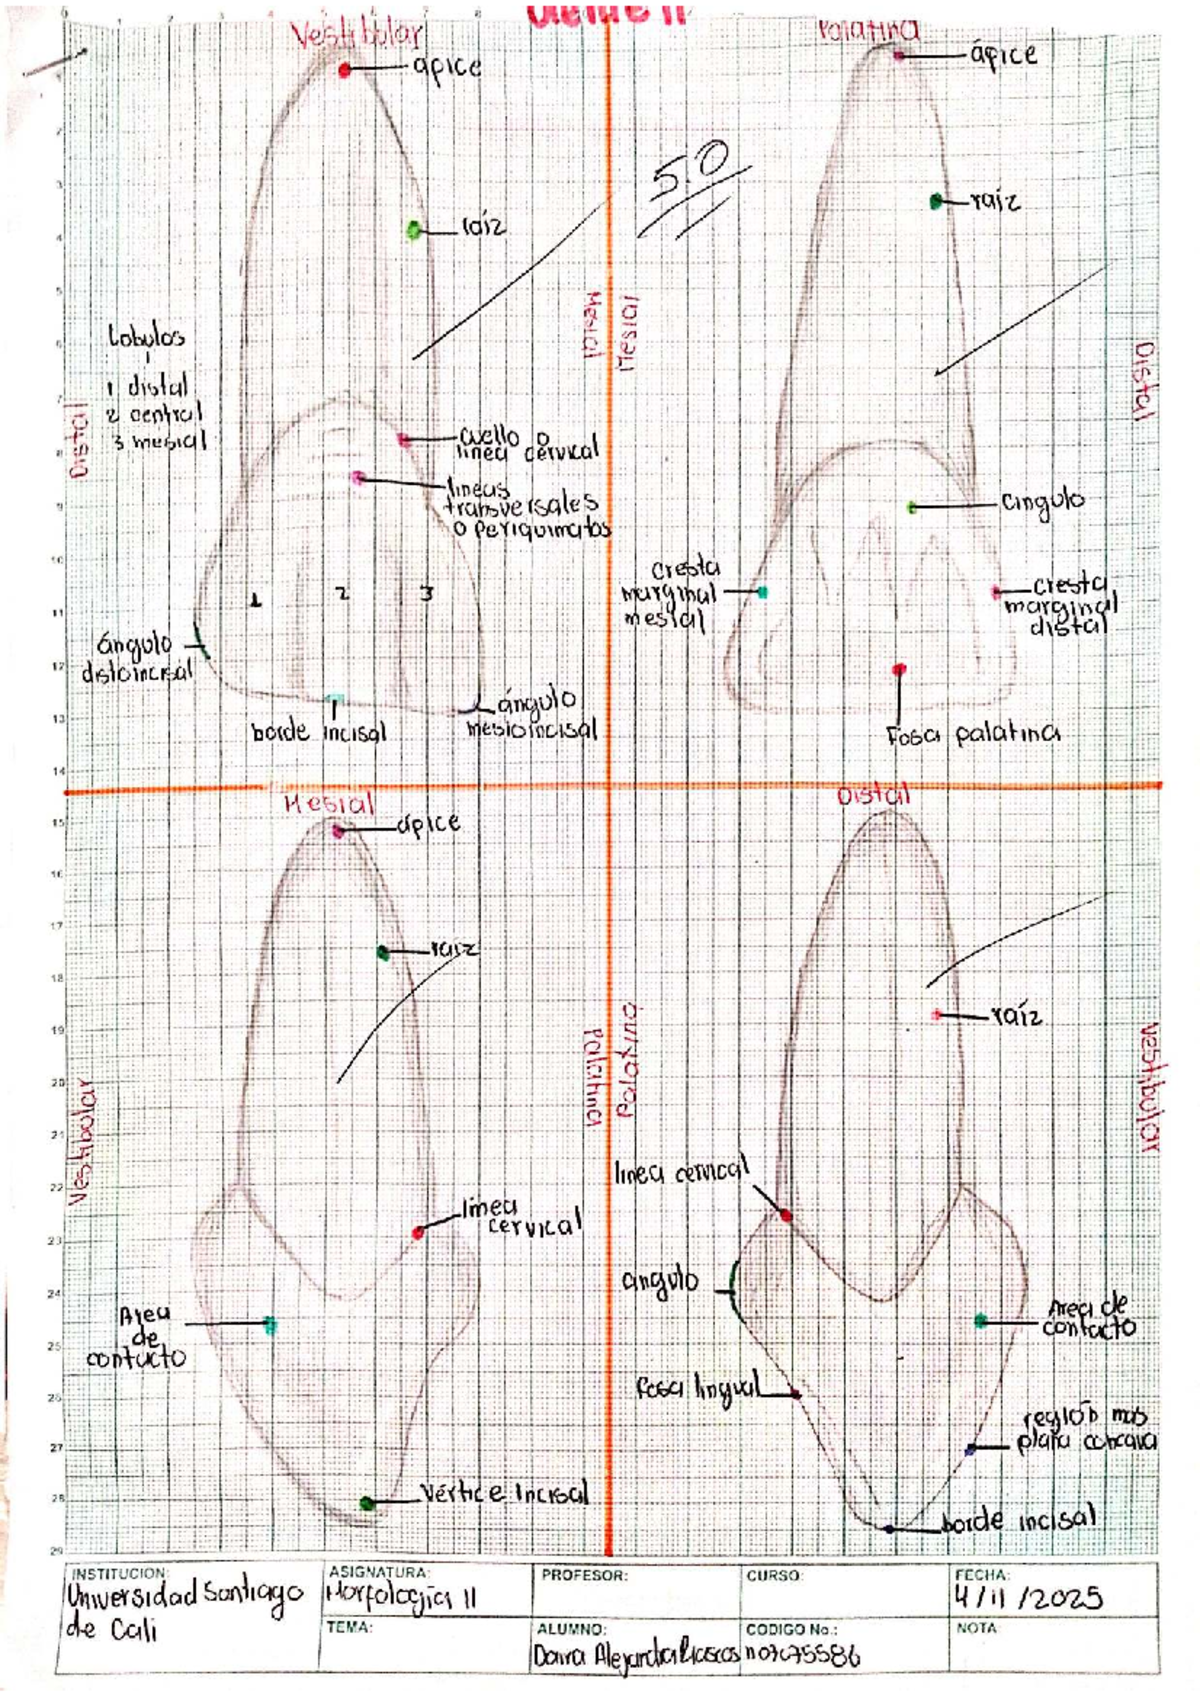 Diente 11
Vestibular
ápice
raíz
Lobulos
1 distal
2 central
3 mesial
Distal
Mesial
cuello o
linea cervical
lineas
transversales
o periquimatos
1
2
3
ángulo
distoincisal
borde incisal
ángulo
mesioincisal
Palatina
ápice
5.0
raíz
Mesial
Distal
cingulo
cresta
marginal
mesial
cresta
marginal
distal
Fosa palatina
Mesial
ápice
raiz
Vestibular
Palatina
línea
cervical
Area
de
contacto
Vértice Incisal
Distal
raíz
Palatino
Vestibular
linea cervical
angulo
Area de
contacto
fosa lingual
región mas
plana concava
borde incisal
INSTITUCION:
Universidad Santiago
de Cali
ASIGNATURA:
Morfología II
TEMA:
PROFESOR:
ALUMNO:
Alejandra
CURSO:
CODIGO No.:
FECHA:
4/11/2025
NOTA: